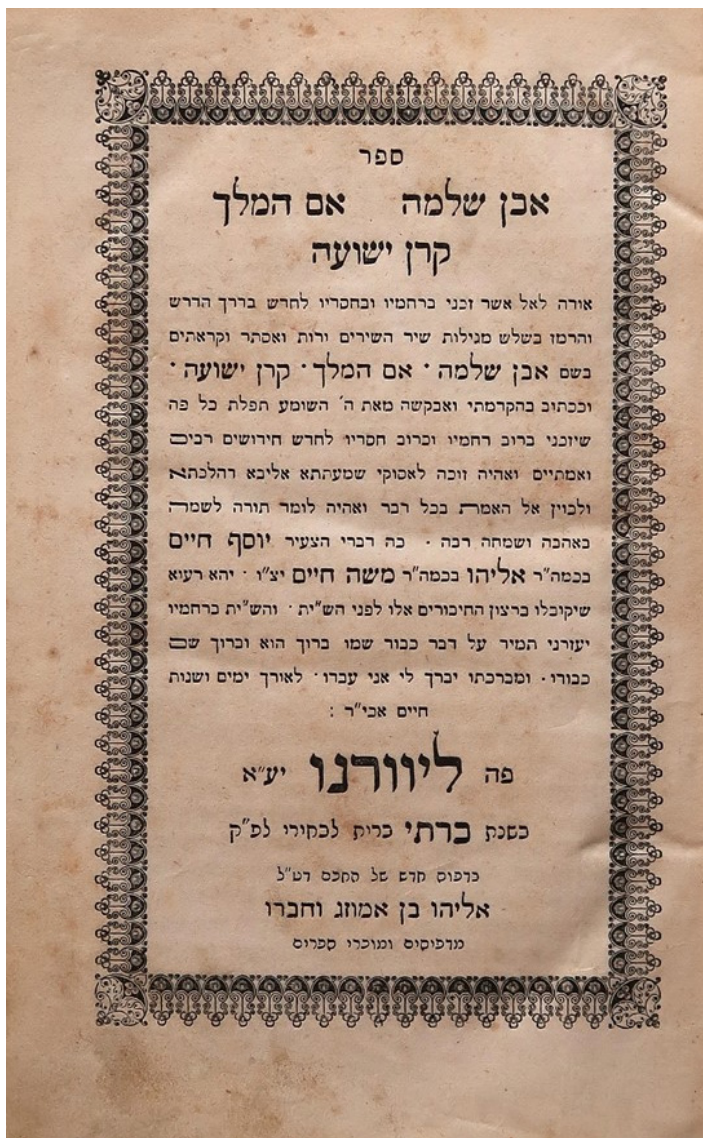 ספר
אבן שלמה אם המלך
קרן ישועה
אודה לאל אשר זכני ברחמיו ובחסדיו לחדש בדרך הדרש
והרמז בשלש מגילות שיר השירים ורות ואסתר וקראתים
בשם אבן שלמה · אם המלך · קרן ישועה ·
וככתוב בהקדמתי ואבקשה מאת ה׳ השומע תפלת כל פה
שיזכני ברוב רחמיו וברוב חסדיו לחדש חידושים רבים
ואמתיים ואהיה זוכה לאסוקי שמעתתא אליבא דהלכתא
ולכוין אל האמת בכל דבר ואהיה לומד תורה לשמה
באהבה ושמחה רבה · כה דברי הצעיר יוסף חיים
בכמה״ר אליהו בכמה״ר משה חיים יצ״ו · יהא רעוא
שיקובלו ברצון החיבורים אלו לפני הש״ית · והש״ית ברחמיו
יעזרני תמיד על דבר כבוד שמו ברוך הוא וברוך שם
כבודו · ומברכתו יברך לי אני עבדו · לאורך ימים ושנות
חיים אכי״ר :
פה ליוורנו יע״א
בשנת ברתי ברית לבחירי לפ״ק
בדפוס חדש של החכם דט״ל
אליהו בן אמוזג וחברו
מדפיסים ומוכרי ספרים